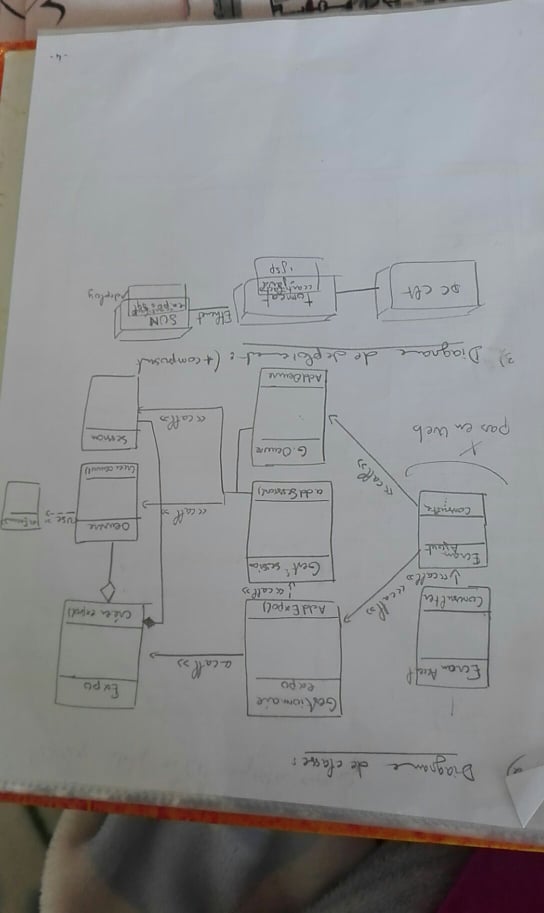 2) Diagrame de classe :
Ecran Accueil
Consulter
«call»
Ecran
Ajout
Consulter
pas en web
«call»
«call»
Gestionnaire
expo
AddExpo()
«call»
Gest° session
addSession()
G. Oeuvre
AddOeuvre
«call»
Expo
créer expo()
«call»
Oeuvre
créer oeuvre()
use
«call»
Session
3) Diagrame de deploiement : (+ composent
PC clt
tomcat
.jsp
Ethernet
SUN
expo.sql
deploy
-4-